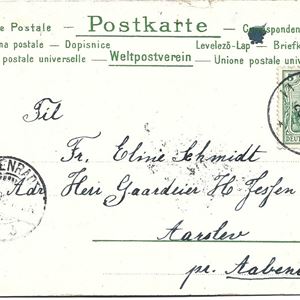 e Postale — Postkarte — Correspondenz
na postale — Dopisnice Levelező-Lap — Briefk
postale universelle — Weltpostverein — Unione postale univer
Til
Fr. Eline Schmidt
Adr Herr Gaardeier H Jessen
Aarslev
pr. Aabenr
ENRA
DEUT